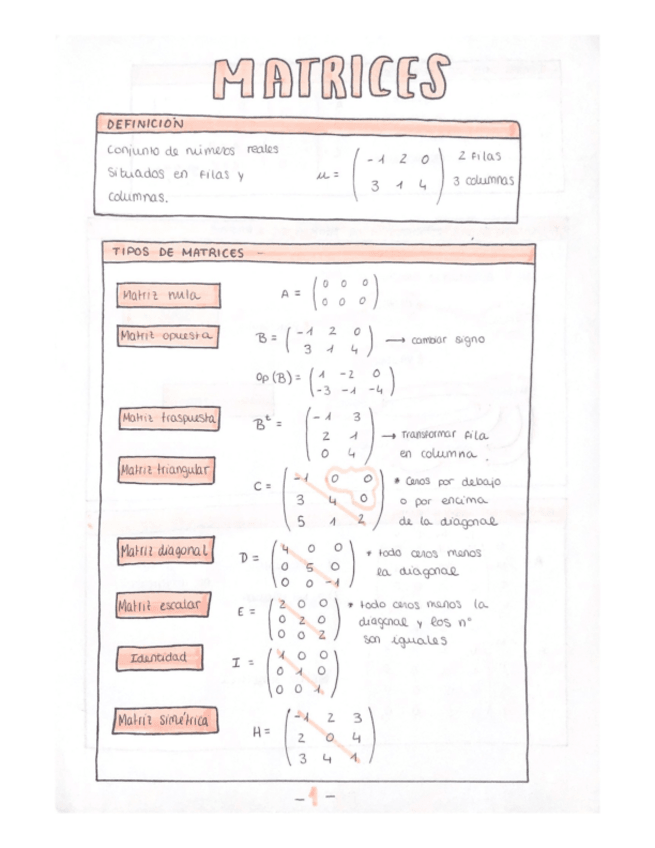 MATRICES
DEFINICIÓN
Conjunto de números reales
situados en filas y
columnas.
M = ( -1 2 0
3 1 4 )
2 filas
3 columnas
TIPOS DE MATRICES -
Matriz nula
A = ( 0 0 0
0 0 0 )
Matriz opuesta
B = ( -1 2 0
3 1 4 ) → cambiar signo
Op (B) = ( 1 -2 0
-3 -1 -4 )
Matriz traspuesta
Bᵗ = ( -1 3
2 1
0 4 )
→ Transformar fila
en columna.
Matriz triangular
C = ( -1 0 0
3 4 0
5 1 2 )
* Ceros por debajo
o por encima
de la diagonal
Matriz diagonal
D = ( 4 0 0
0 5 0
0 0 -1 )
* todo ceros menos
la diagonal
Matriz escalar
E = ( 2 0 0
0 2 0
0 0 2 )
* todo ceros menos la
diagonal y los nº
son iguales
Identidad
I = ( 1 0 0
0 1 0
0 0 1 )
Matriz simétrica
H = ( -1 2 3
2 0 4
3 4 1 )
- 1 -